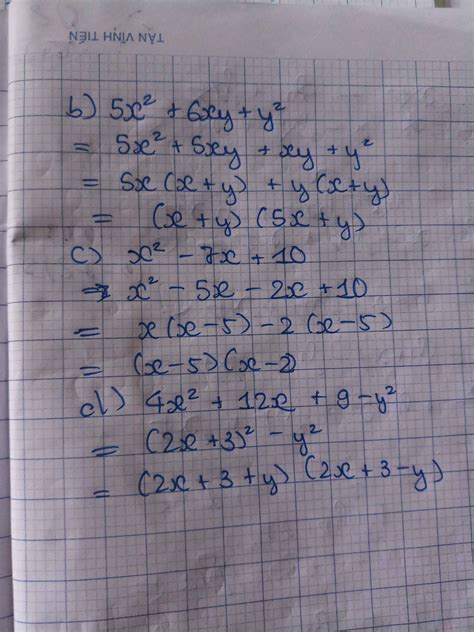 TÂN VĨNH TIẾN
b) 5x² + 6xy + y²
= 5x² + 5xy + xy + y²
= 5x (x + y) + y (x + y)
= (x + y) (5x + y)
c) x² - 7x + 10
= x² - 5x - 2x + 10
= x (x - 5) - 2 (x - 5)
= (x - 5) (x - 2)
d) 4x² + 12x + 9 - y²
= (2x + 3)² - y²
= (2x + 3 + y) (2x + 3 - y)